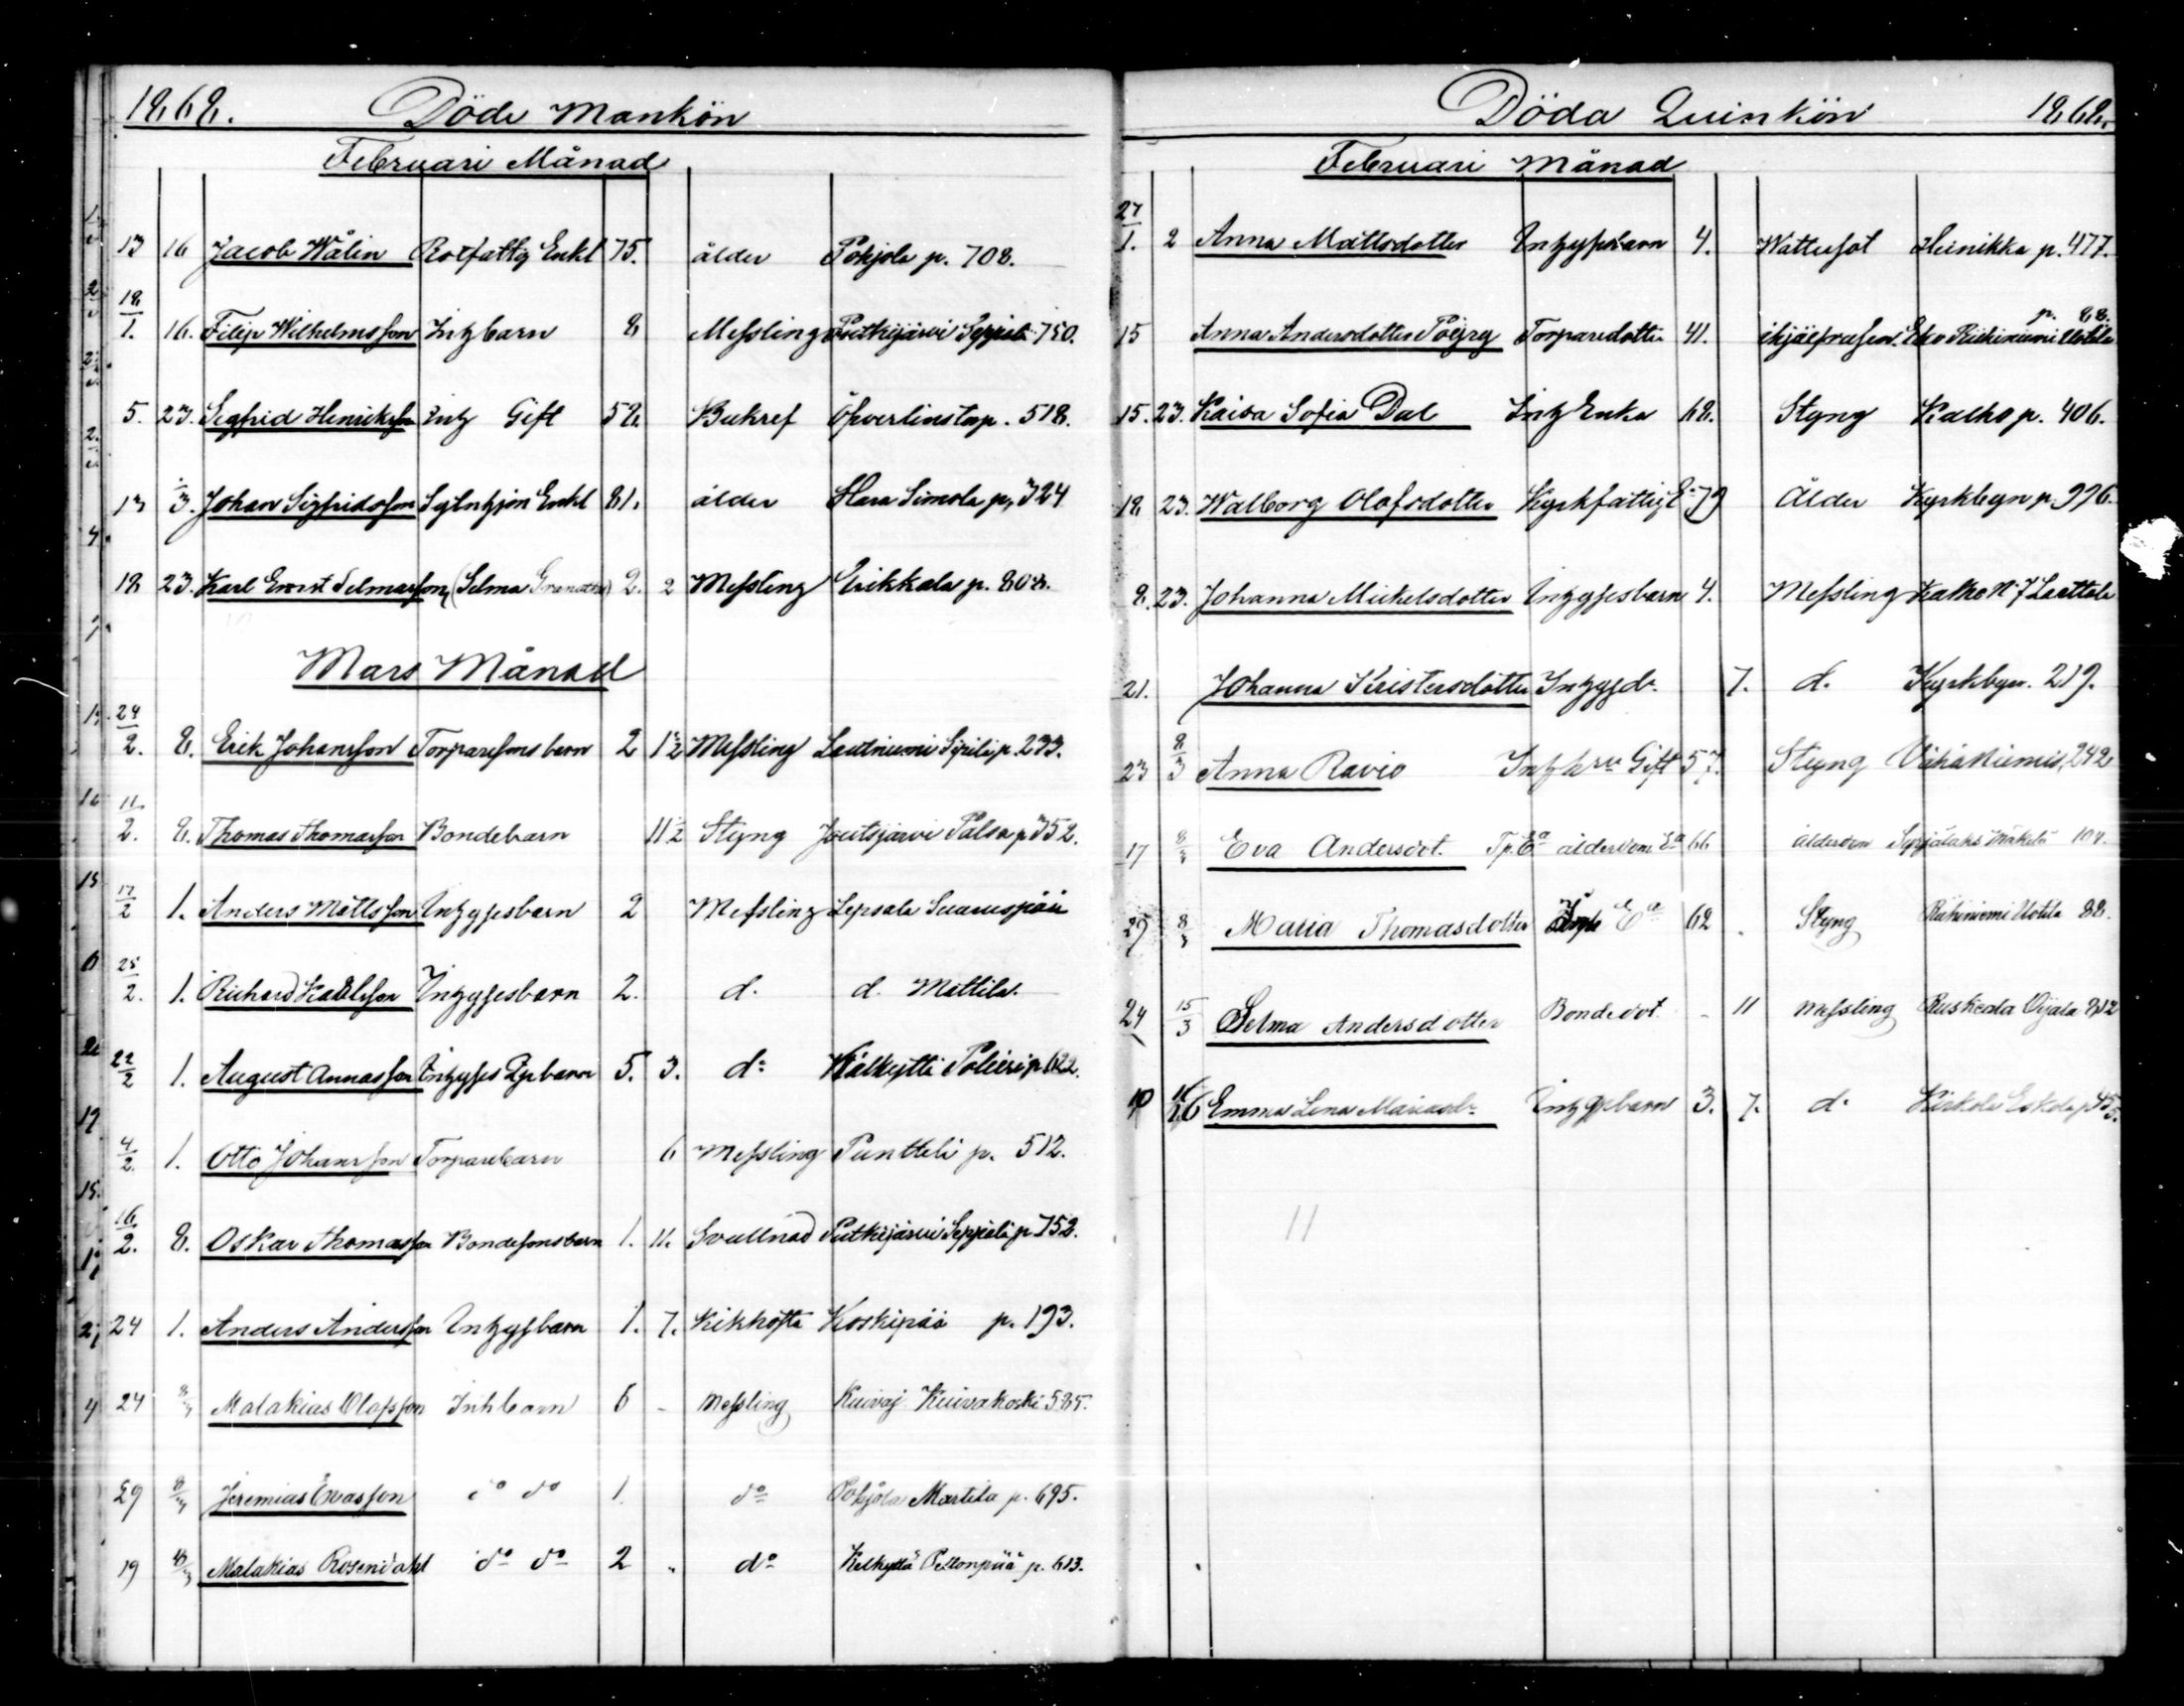 1868. Döde Mankön
Februari Månad
13 16 Jacob Wålin Rotfattig Enkl 75. ålder Pohjola p. 708.
18/1. 16. Filip Wilhelmsson Inhbarn 8 Messling Putkijärvi Seppälä 750.
5. 23. Segfrid Henriksson Inh Gift 58. Bukref Öfverlinsta p. 518.
13 3. Johan Sigfridsson Enkl 81. ålder Hara Simola p. 324
18 23. Karl Ernst Selmasson (Selma) 2. 2 Messling Erikkala p. 808.
Mars Månad
24/2. 8. Erik Johansson Torparesons barn 2 1/2 Messling Lautniemi p. 233.
11/2. 8. Thomas Thomasson Bondebarn 11 1/2 Styng Joutsjärvi Palsa p. 352.
17/2 1. Anders Mattsson Inhysesbarn 2 Messling Lepsala
25/2. 1. Richard Karlsson Inhysesbarn 2. d. d. Mattila.
22/2 1. August Annasson Inhyses barn 5. 3. d:o Kälkyttä p. 622.
4/2. 1. Otto Johansson Torparebarn 6 Messling Puntteli p. 512.
16/2. 8. Oskar Thomasson Bondesonsbarn 1. 11. Svullnad Putkijärvi Seppälä p. 752.
24 1. Anders Andersson Inhysbarn 1. 7. Kikhosta Koskipää p. 193.
24 8/3 Malakias Olofsson Inhbarn 6 - Messling Kuivaj Kuivakoski 585.
29 8/3 Jeremias Evasson do do 1. do Pohjola Martila p. 695.
19 Malakias Rosendahl do do 2 " do Kelkyttä Peltonpää p. 613.
Döda Quinkön 1868.
Februari Månad
27/1. 2 Anna Mattsdotter Inhysesbarn 4. Wattusot Heinikka p. 477.
p. 88.
15 Anna Andersdotter Torparedotter 41. Riihiniemi Uotila
15. 23. Kaisa Sofia Dal Inh Enka 68. Styng Kalho p. 406.
18 23. Walborg Olofsdotter Kyrkfattig E. 79 Ålder Kyrkbyn p. 996.
8. 23. Johanna Michelsdotter Inhysesbarn 4. Messling Kalho N:7 Laattala
21. Johanna Kristersdotter 7. d. Kyrkbyn. 219.
23 8/3 Anna Ravio Gift 57. Styng Vähäniemi, 242
17 8/3 Eva Andersdot. Tp. Ea ålderdom Ea 66 ålderdom Seppälaks Mäkelä 104.
29 8/3 Maria Thomasdotter Ea 62 Styng Riihiniemi Uotila 88.
24 15/3 Selma Andersdotter Bondedot. - 11 Messling Ruskeala Oijala 812
Emma Lena Mariasdr Inhysbarn 3. 7. d:o Kirkola Eskola p. 455.
11